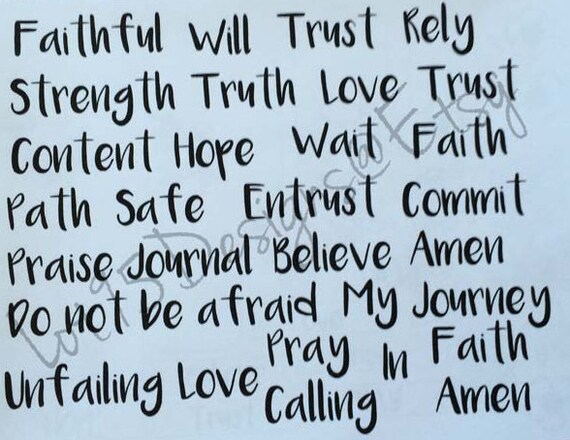 Faithful Will Trust Rely
Strength Truth Love Trust
Content Hope Wait Faith
Path Safe Entrust Commit
Praise Journal Believe Amen
Do not be afraid My Journey
Unfailing Love Pray In Faith
Calling Amen
Lori95Designs@Etsy